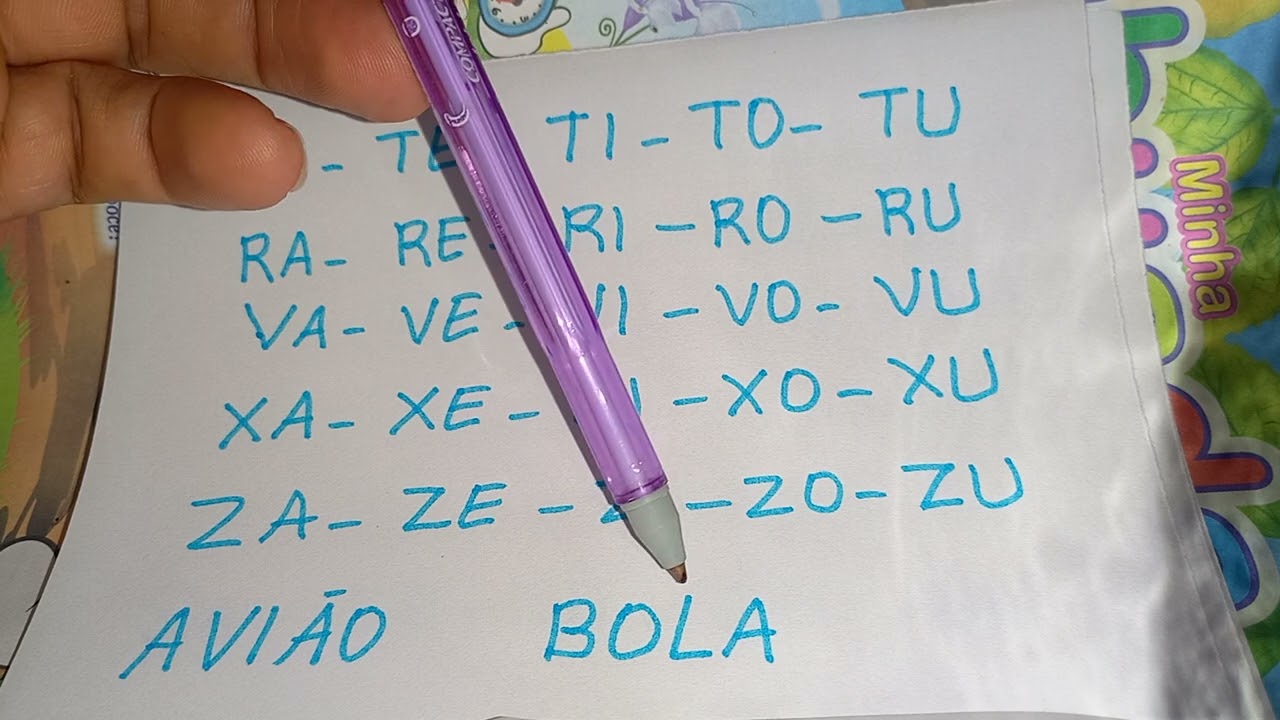 COMPACTOR
- TE TI - TO - TU
RA - RE - RI - RO - RU
VA - VE - VI - VO - VU
XA - XE - - XO - XU
ZA - ZE - - ZO - ZU
AVIÃO BOLA
Minha